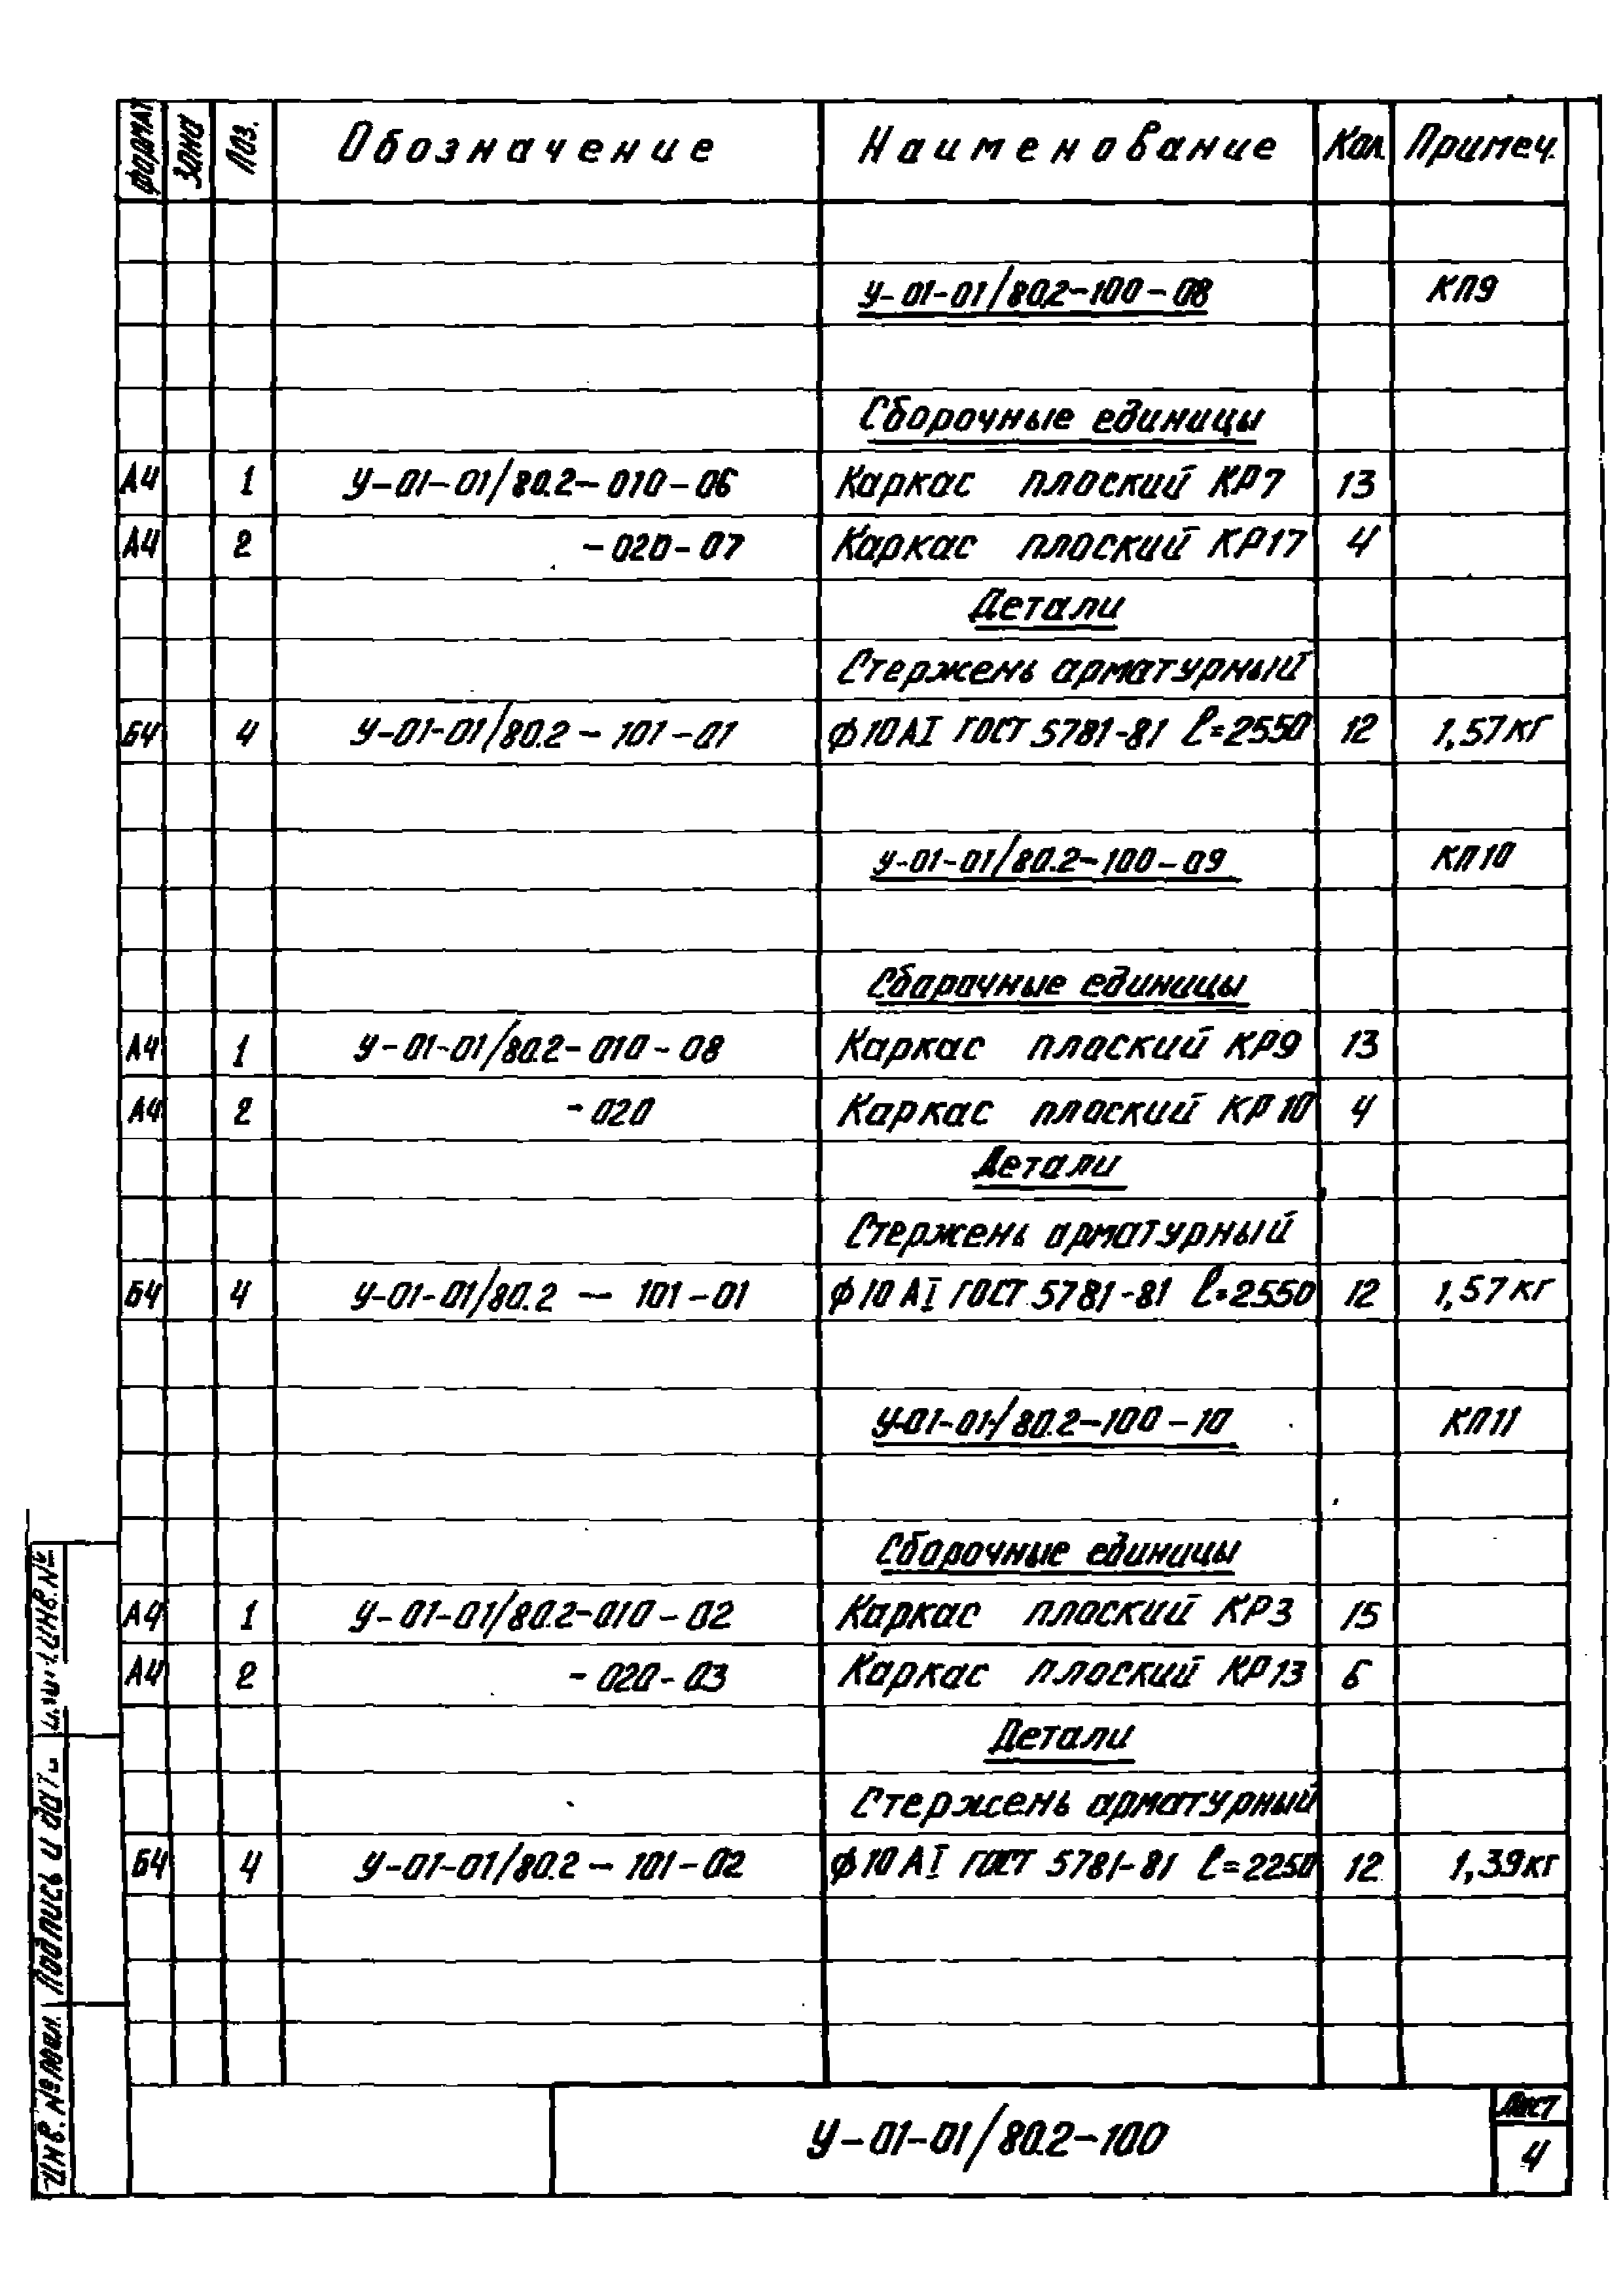 Формат Зона Поз. Обозначение Наименование Кол. Примеч.
У-01-01/80.2-100-08 КП9
Сборочные единицы
А4 1 У-01-01/80.2-010-06 Каркас плоский КР7 13
А4 2 -020-07 Каркас плоский КР17 4
Детали
Стержень арматурный
Б4 4 У-01-01/80.2-101-01 ф10АI ГОСТ 5781-81 ℓ=2550 12 1,57кг
У-01-01/80.2-100-09 КП10
Сборочные единицы
А4 1 У-01-01/80.2-010-08 Каркас плоский КР9 13
А4 2 -020 Каркас плоский КР10 4
Детали
Стержень арматурный
Б4 4 У-01-01/80.2-101-01 ф10АI ГОСТ 5781-81 ℓ=2550 12 1,57кг
У-01-01/80.2-100-10 КП11
Сборочные единицы
А4 1 У-01-01/80.2-010-02 Каркас плоский КР3 15
А4 2 -020-03 Каркас плоский КР13 6
Детали
Стержень арматурный
Б4 4 У-01-01/80.2-101-02 ф10АI ГОСТ 5781-81 ℓ=2250 12 1,39кг
У-01-01/80.2-100
Лист
4
инв.№
Подпись и дата
Инв.№подл.